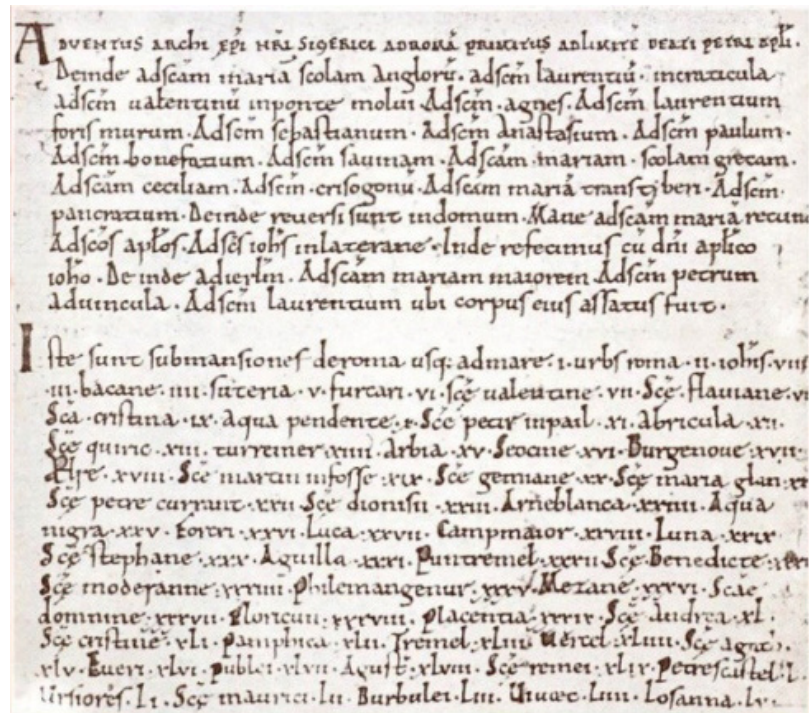 ADUENTUS ARCHI EPI NRI SIGERICI ADROMĀ PRIMITUS ADLIMITĒ BEATI PETRI APLI.
Deinde adscam mariā scolam anglorū. adscm laurentiū. incraticula
adscm ualentinū inponte molui. Adscm. agnes. Adscm laurentium
foris murum. Adscm sebastianum. Adscm Anastasium. Adscm paulum.
Adscm bonefatium. Adscam sauinam. Adscam. mariam. scolam grecam.
Adscam ceciliam. Adscm. crisogonū. Adscam mariā transtyberi. Adscm
pancratium. Deinde reuersi sunt indomum. Mane adscam mariā rotun
Adscos aplos. Adscs iohs inlaterane. Inde refecimus cū dni aplico
ioho. Deinde adierlm. Adscam mariam maiorem Adscm petrum
aduincula. Adscm laurentium ubi corpus eius assatus fuit.
Iste sunt submansiones deroma usq: admare. i. urbs roma. ii. iohis. uiiii
iii. bacane. iiii. suteria. v. furcari. vi. sce ualentine. vii. Sce. flauiane. vi
Sca. cristina. ix. Aqua pendente. x. Sce petir inpail. xi. Abricula. xii.
Sce quiric. xiii. turreiner. xiiii. Arbia. xv. Seocine. xvi. Burgenoue. xvii.
Ælse. xviii. Sce martin infosse. xix. Sce gemiane. xx. Sce maria glan. xx
Sce petre currant. xxii. Sce dionisii. xxiii. Arneblanca. xxiiii. Aqua
nigra. xxv. forcri. xxvi. Luca. xxvii. Campmaior. xxviii. Luna. xxix.
Sce stephane. xxx. Aguilla. xxxi. Puntremel. xxxii. Sce Benedicte. xxxiii
Sce moderanne. xxxiiii. Philemangenur. xxxv. Mezane. xxxvi. Scae
domnine. xxxvii. floricun. xxxviii. placentia. xxxix. Sce Andrea. xl.
Sce cristine. xli. pamphica. xlii. Tremel. xliii. Uercel. xliiii. Sce agath.
xlv. Eueri. xlvi. publei. xlvii. Agust. xlviii. Sce remei. xlix. Petrescastel. l.
Ursiores. li. Sce maurici. lii. Burbulei. liii. Uiuaec. liiii. Losanna. lv.